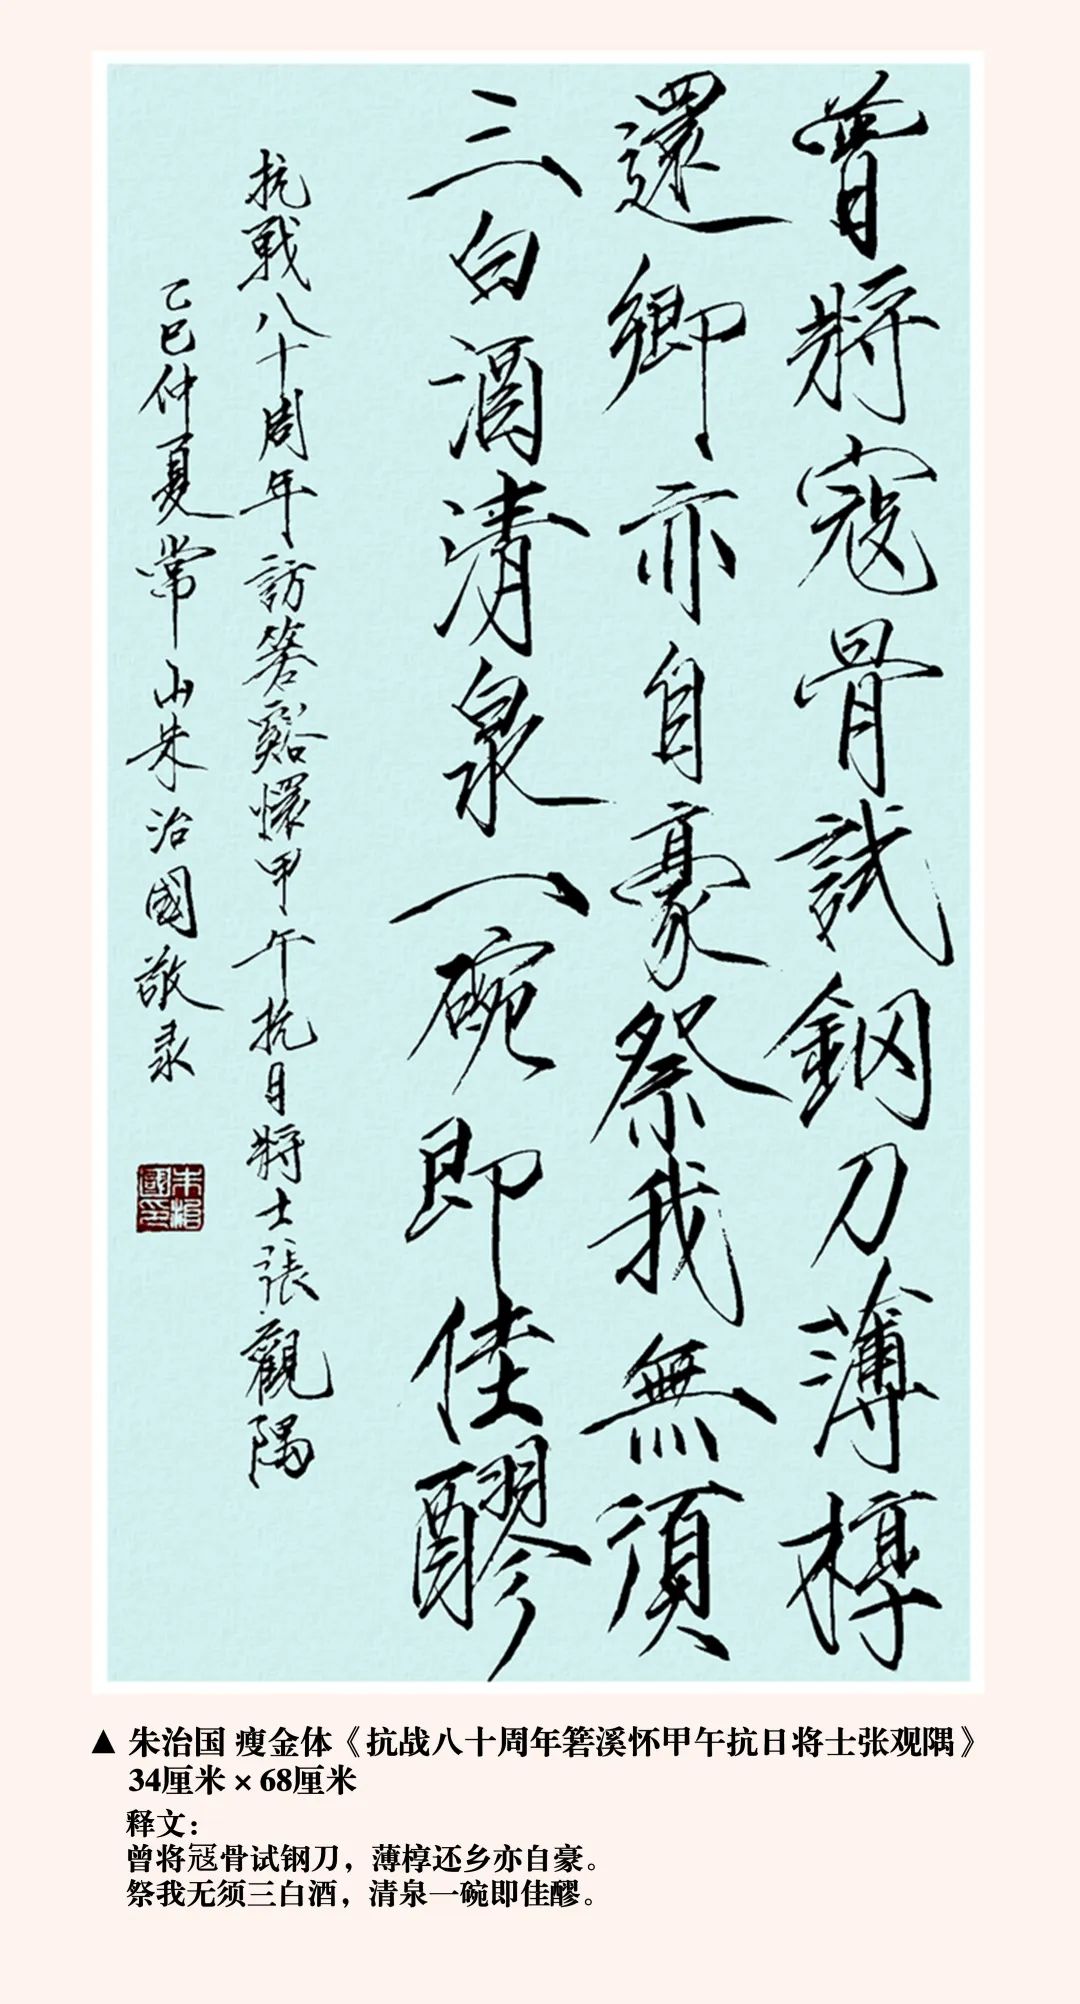 曾將寇骨試鋼刀薄椁
還鄉亦自豪祭我無須
三白酒清泉一碗即佳醪
抗戰八十周年訪箬谿懷甲午抗日將士張觀隅
乙巳仲夏常山朱治國敬录
▲ 朱治国 瘦金体《抗战八十周年箬溪怀甲午抗日将士张观隅》
34厘米 × 68厘米
释文：
曾将寇骨试钢刀，薄椁还乡亦自豪。
祭我无须三白酒，清泉一碗即佳醪。